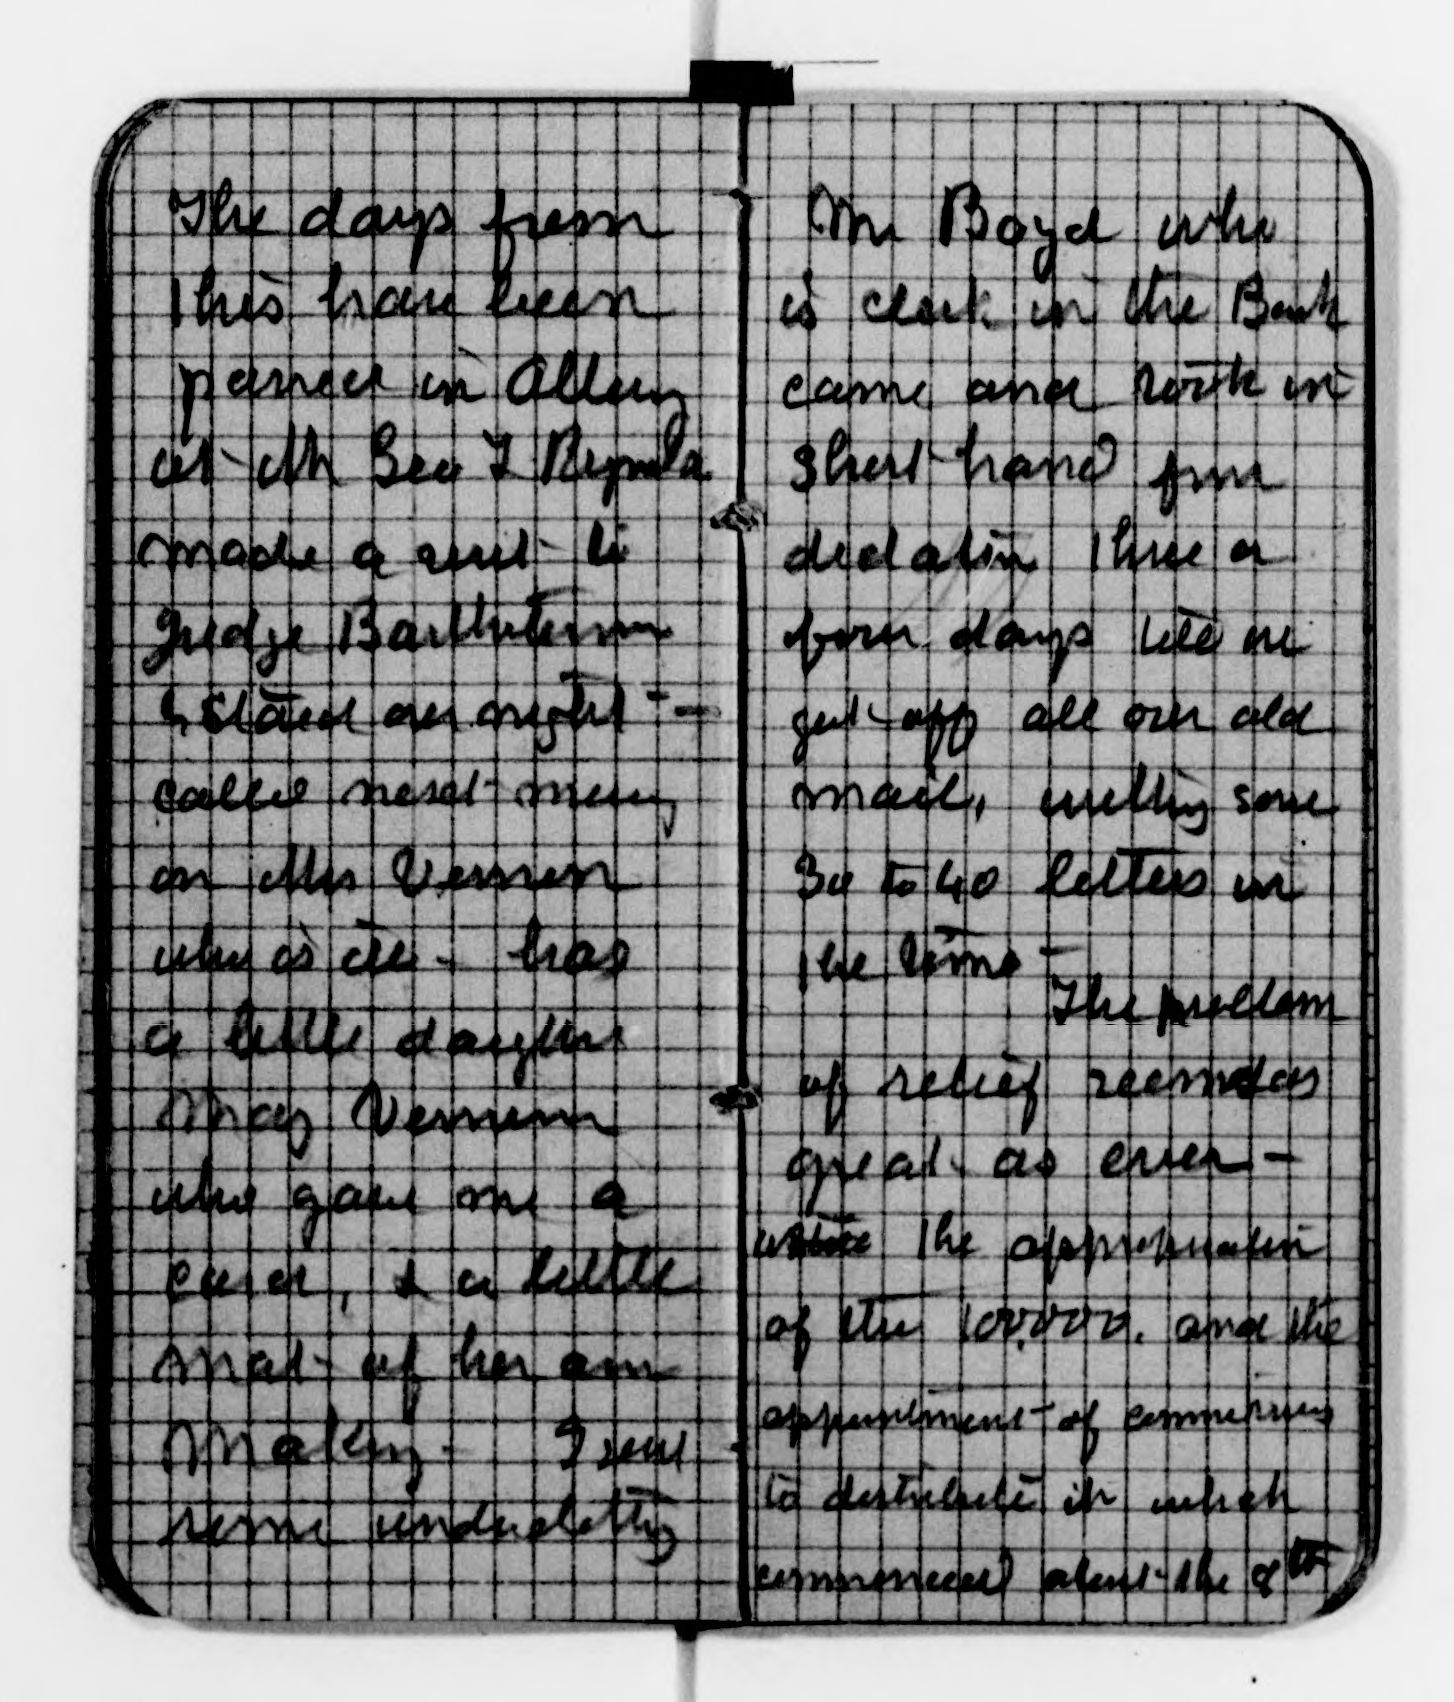 The days from
this have been
passed in Albany
at Mr Geo I Reynolds
made a visit to
Judge
& staid over night -
called next morning
on Mrs Vernon
who is ill - has
a little daughter
May Vernon
who gave me a
card, & a little
mat of her own
making - I sent
some underclothing
Mr Boyd who
is clerk in the Bank
came and took in
short hand from
dictation three or
four days till we
got off all our old
mail, writing some
30 to 40 letters in
the time -
The problem
of relief seemed as
great as ever -
the appropriation
of the 100,000. and the
appointment of commissioners
to distribute it which
commenced about the 8th